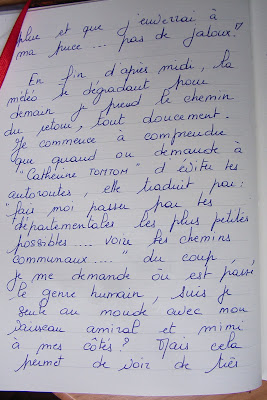 plue et que j'enverrai à
ma puce ... pas de jaloux !
En fin d'après midi, la
météo se dégradant pour
demain je prend le chemin
du retour, tout doucement.
Je commence à comprendre
que quand on demande à
"Catherine TOMTOM" d'éviter les
autoroutes, elle traduit par :
"fais moi passer par les
départementales les plus petites
possibles .... voir les chemins
communaux .... " du coup,
je me demande où est passé
le genre humain, suis je
seule au monde avec mon
vaisseau amiral et mimi
à mes côtés ? Mais cela
permet de voir de très